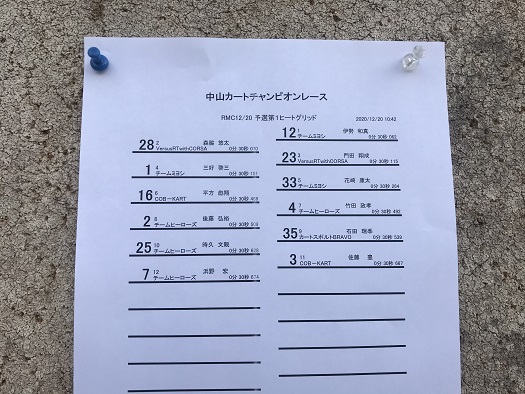 中山カートチャンピオンレース
RMC12/20 予選第1ヒートグリッド
2020/12/20 10:42
12 1 伊勢 和真
チームミヨシ 0分 30秒 062
28 2 森脇 悠太
VersusRTwithCORSA 0分 30秒 070
23 3 門田 翔成
VersusRTwithCORSA 0分 30秒 115
1 4 三好 啓三
チームミヨシ 0分 30秒 151
33 5 花崎 康太
チームミヨシ 0分 30秒 204
16 6 平方
COB-KART 0分 30秒 468
4 7 竹田 政孝
チームヒーローズ 0分 30秒 492
2 8 後藤 弘裕
チームヒーローズ 0分 30秒 509
35 9 石田
カートスポルトBRAVO 0分 30秒 539
25 10 時久 文顕
チームヒーローズ 0分 30秒 628
3 11 佐藤
COB-KART 0分 30秒 667
7 12 浜野 宏
チームヒーローズ 0分 30秒 674